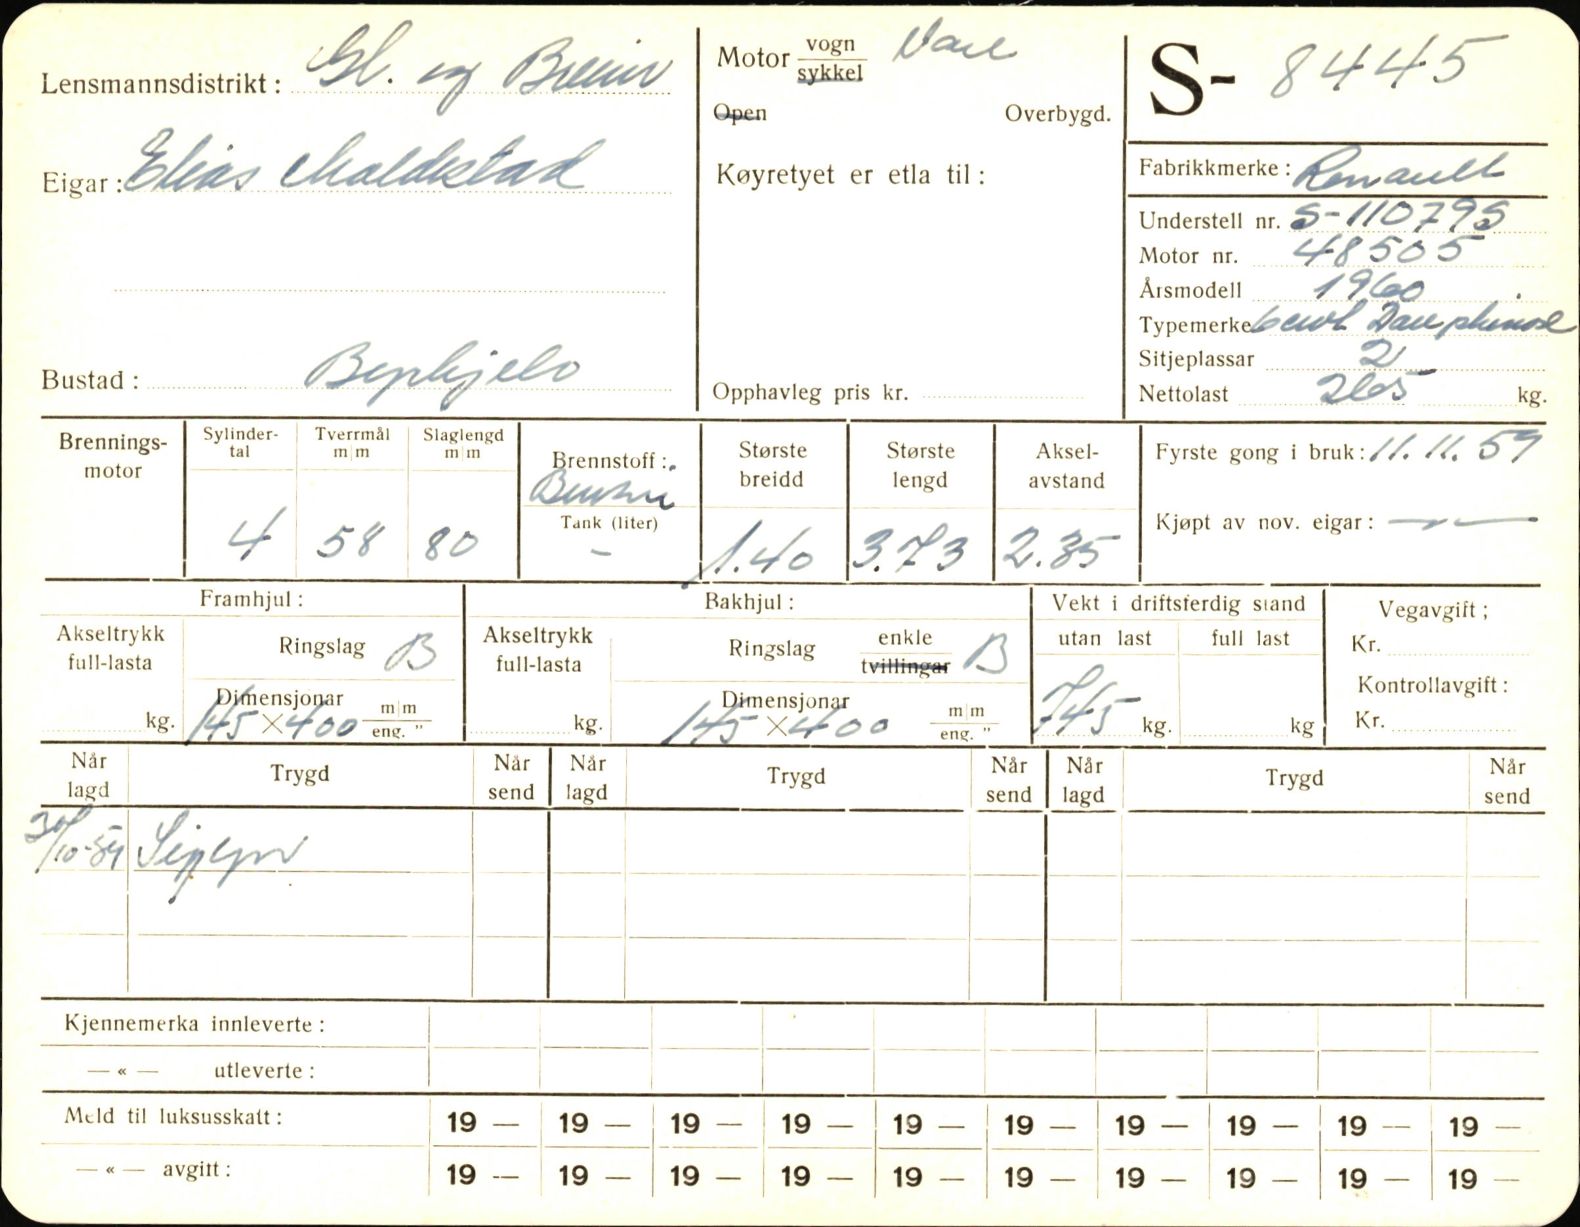 Lensmannsdistrikt: Gl. og Breim
Eigar: Elias Maldestad
Bustad: Byrkjelo
Motor vogn sykkel Vare
Open Overbygd.
Køyretyet er etla til:
Opphavleg pris kr.
S- 8445
Fabrikkmerke: Renault
Understell nr. S-110795
Motor nr. 48505
Årsmodell 1960
Typemerke Dauphinoise
Sitjeplassar 2
Nettolast 265 kg.
Brennings-
motor
Sylinder-
tal
4
Tverrmål
m|m
58
Slaglengd
m|m
80
Brennstoff:
Bensin
Tank (liter)
–
Største
breidd
1.40
Største
lengd
3.73
Aksel-
avstand
2.35
Fyrste gong i bruk: 11.11.59
Kjøpt av nov. eigar: —
Framhjul:
Akseltrykk
full-lasta
kg.
Ringslag B
Dimensjonar m|m
145 × 400 eng. "
Bakhjul:
Akseltrykk
full-lasta
kg.
Ringslag enkle tvillingar B
Dimensjonar m|m
145 × 400 eng. "
Vekt i driftsferdig stand
utan last full last
745 kg. kg
Vegavgift;
Kr.
Kontrollavgift:
Kr.
Når lagd Trygd Når send Når lagd Trygd Når send Når lagd Trygd Når send
30/10-59
Kjennemerka innleverte:
— « — utleverte:
Meld til luksusskatt: 19 — 19 — 19 — 19 — 19 — 19 — 19 — 19 — 19 — 19 —
— « — avgift: 19 — 19 — 19 — 19 — 19 — 19 — 19 — 19 — 19 — 19 —